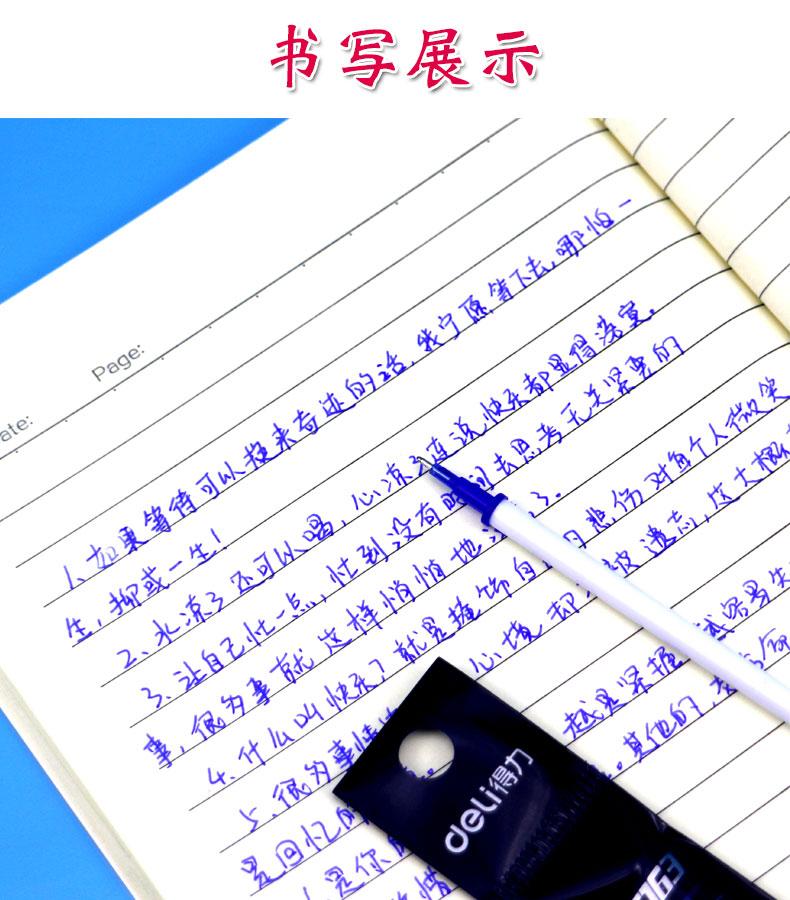 书写展示
Page:
ate:
1、如果等待可以换来奇迹的话，我宁愿等下去，哪怕一
生，抑或一生！
2、水凉了还可以喝，心凉了连说快乐都显得落寞。
3、让自己忙一点，忙到没有时间去思考无关紧要的
事，很多事就这样悄悄地
4、什么叫快乐？就是掩饰自 悲伤对每个人微笑
5、很多事情 心境却 被遗忘，这大概
是回忆 越是紧握 越容易失
是你 。其他的，
deli得力